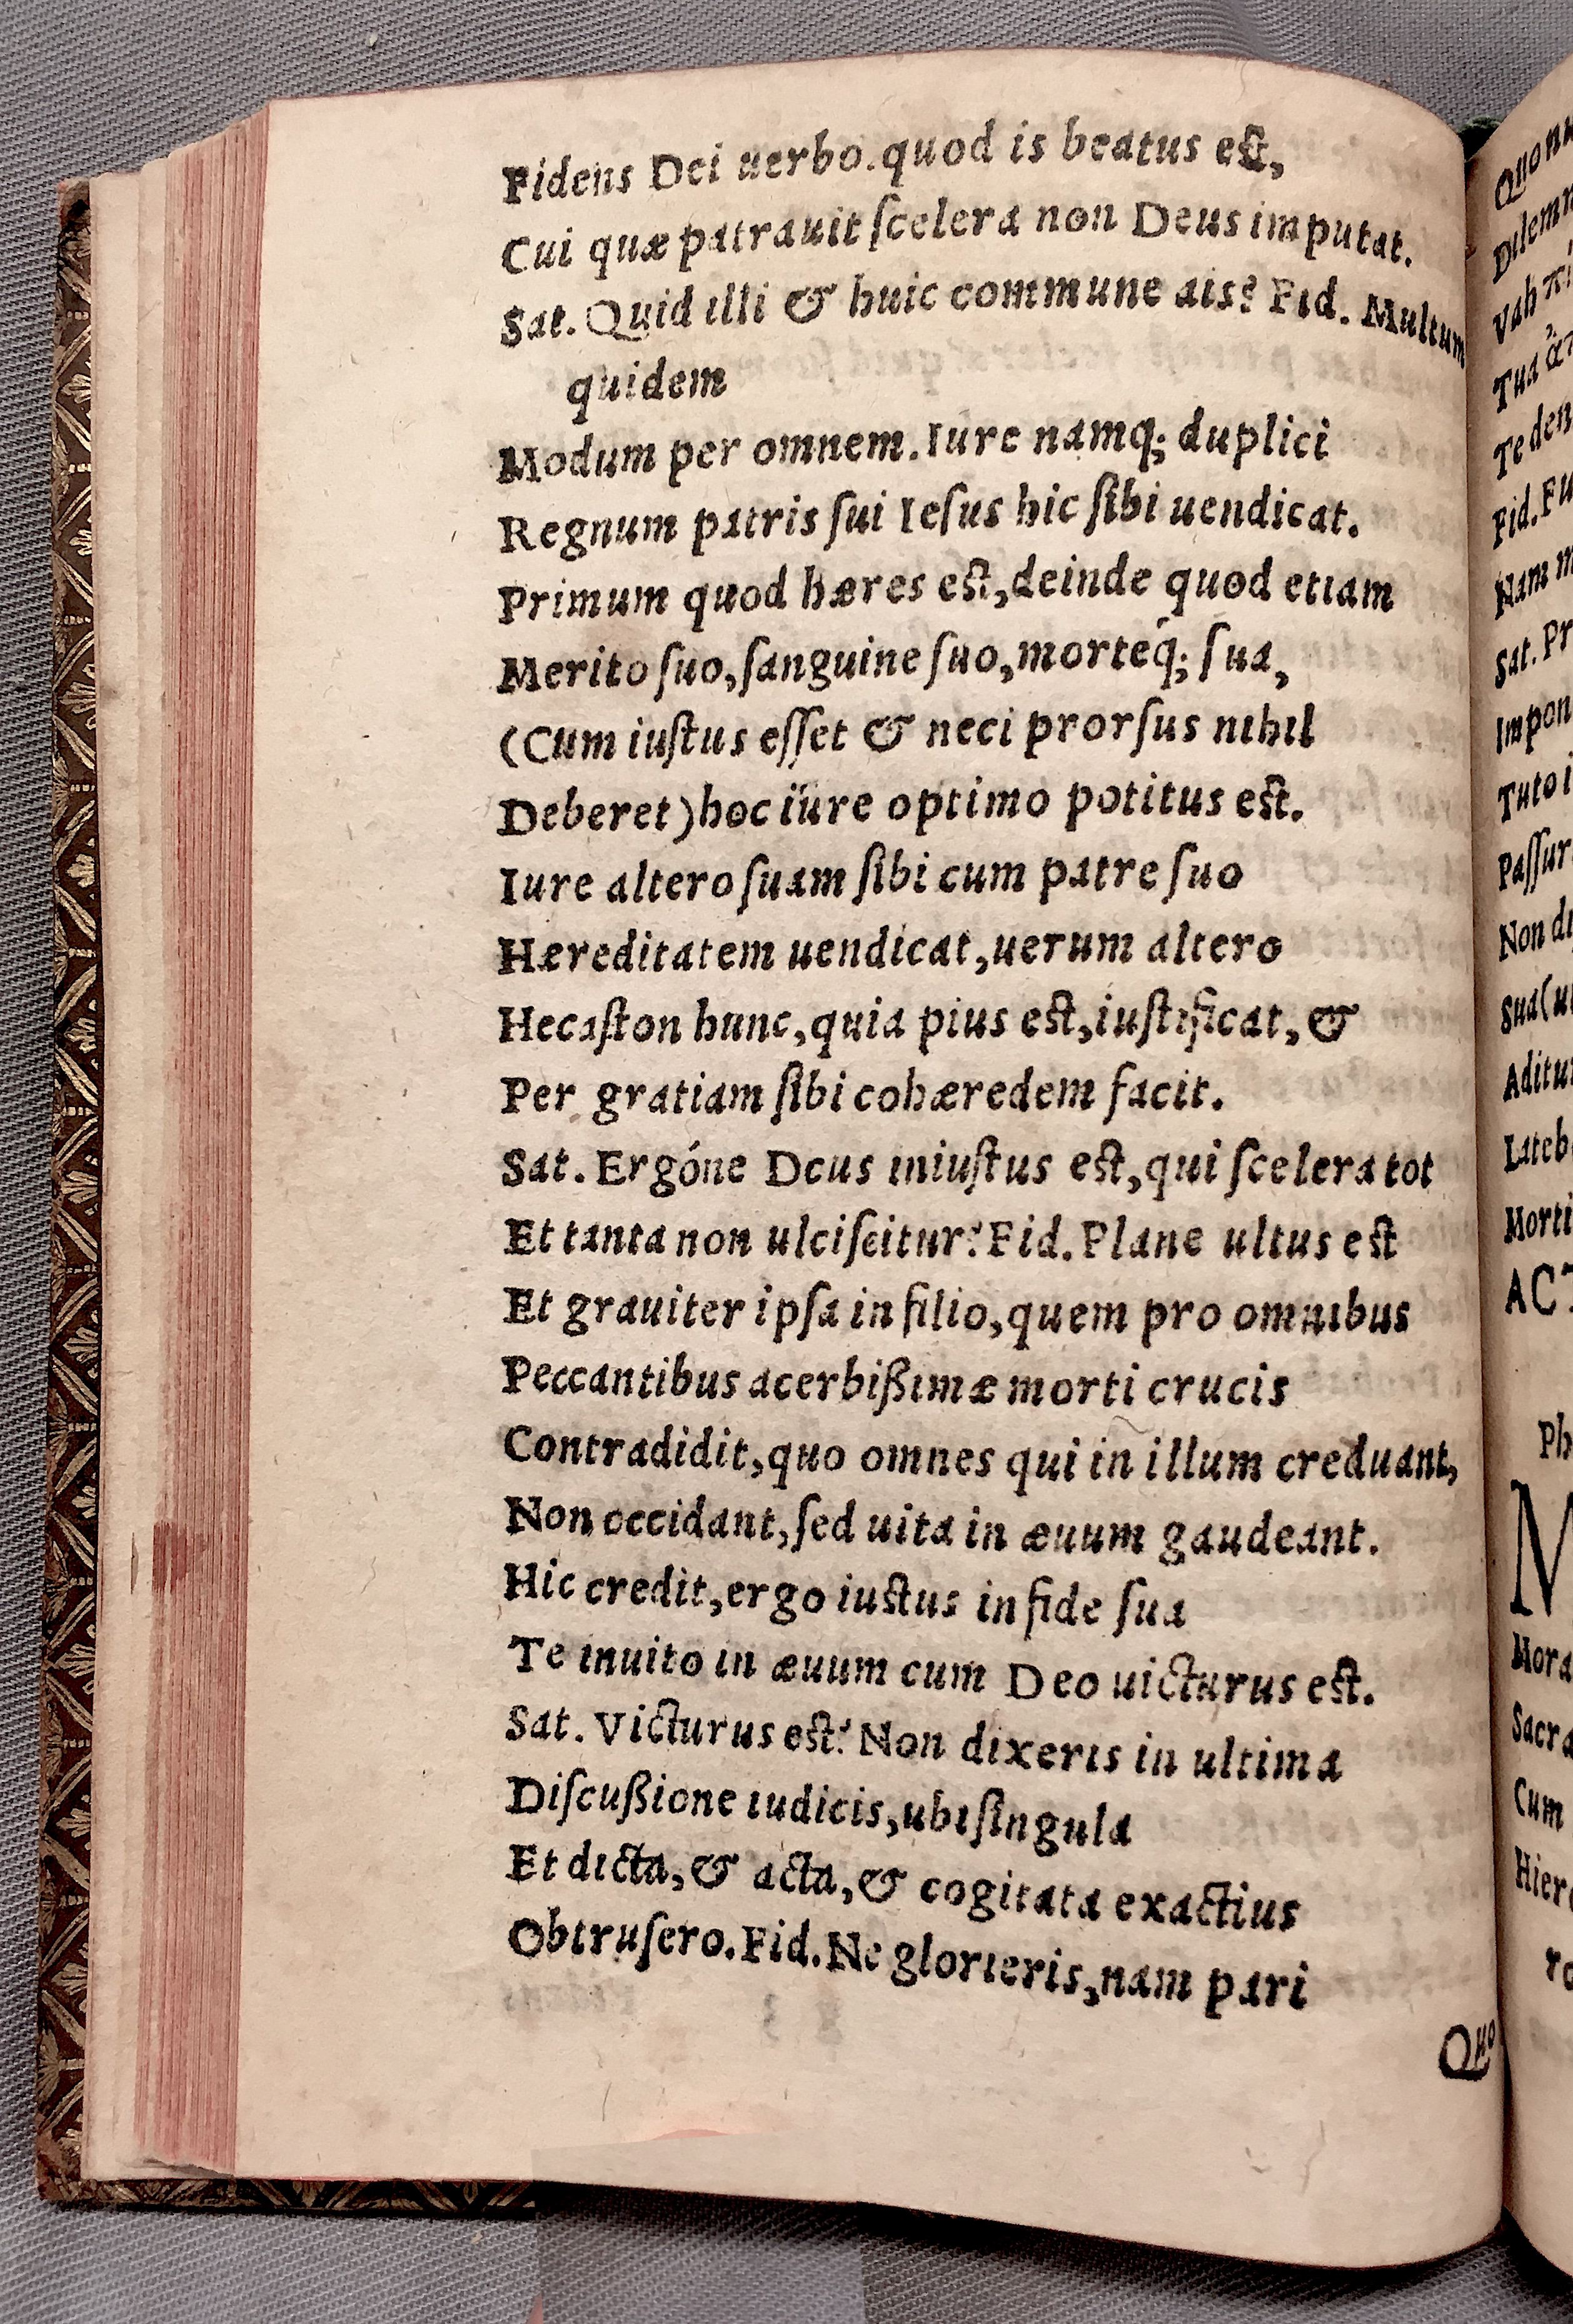 Fidens Dei uerbo.quod is beatus est,
Cui quæ patrauit ſcelera non Deus imputat.
Sat. Quid illi & huic commune ais? Fid. Multum
quidem
Modum per omnem. Iure namq; duplici
Regnum patris ſui Ieſus hic ſibi uendicat.
Primum quod hæres est, deinde quod etiam
Merito ſuo, ſanguine ſuo, morteq́; ſua,
(Cum iuſtus eſſet & neci prorſus nihil
Deberet) hoc iure optimo potitus est.
Iure altero ſuam ſibi cum patre ſuo
Hæreditatem uendicat, uerum altero
Hecaſton hunc, quia pius est, iuſtificat, &
Per gratiam ſibi cohæredem facit.
Sat. Ergóne Deus iniuſtus est, qui ſcelera tot
Et tanta non ulciſcitur? Fid. Plane ultus est
Et grauiter ipſa in filio, quem pro omnibus
Peccantibus acerbißimæ morti crucis
Contradidit, quo omnes qui in illum creduant,
Non occidant, ſed uita in æuum gaudeant.
Hic credit, ergo iustus in fide ſua
Te inuito in æuum cum Deo uicturus est.
Sat. Victurus est? Non dixeris in ultima
Diſcußione iudicis, ubi ſingula
Et dicta, & acta, & cogitata exactius
Obtruſero. Fid. Ne glorieris, nam pari
Quo
Quo
Vah
Tua
Fid.
Nam
Sat.
Non
Morti
Sacra
Cum